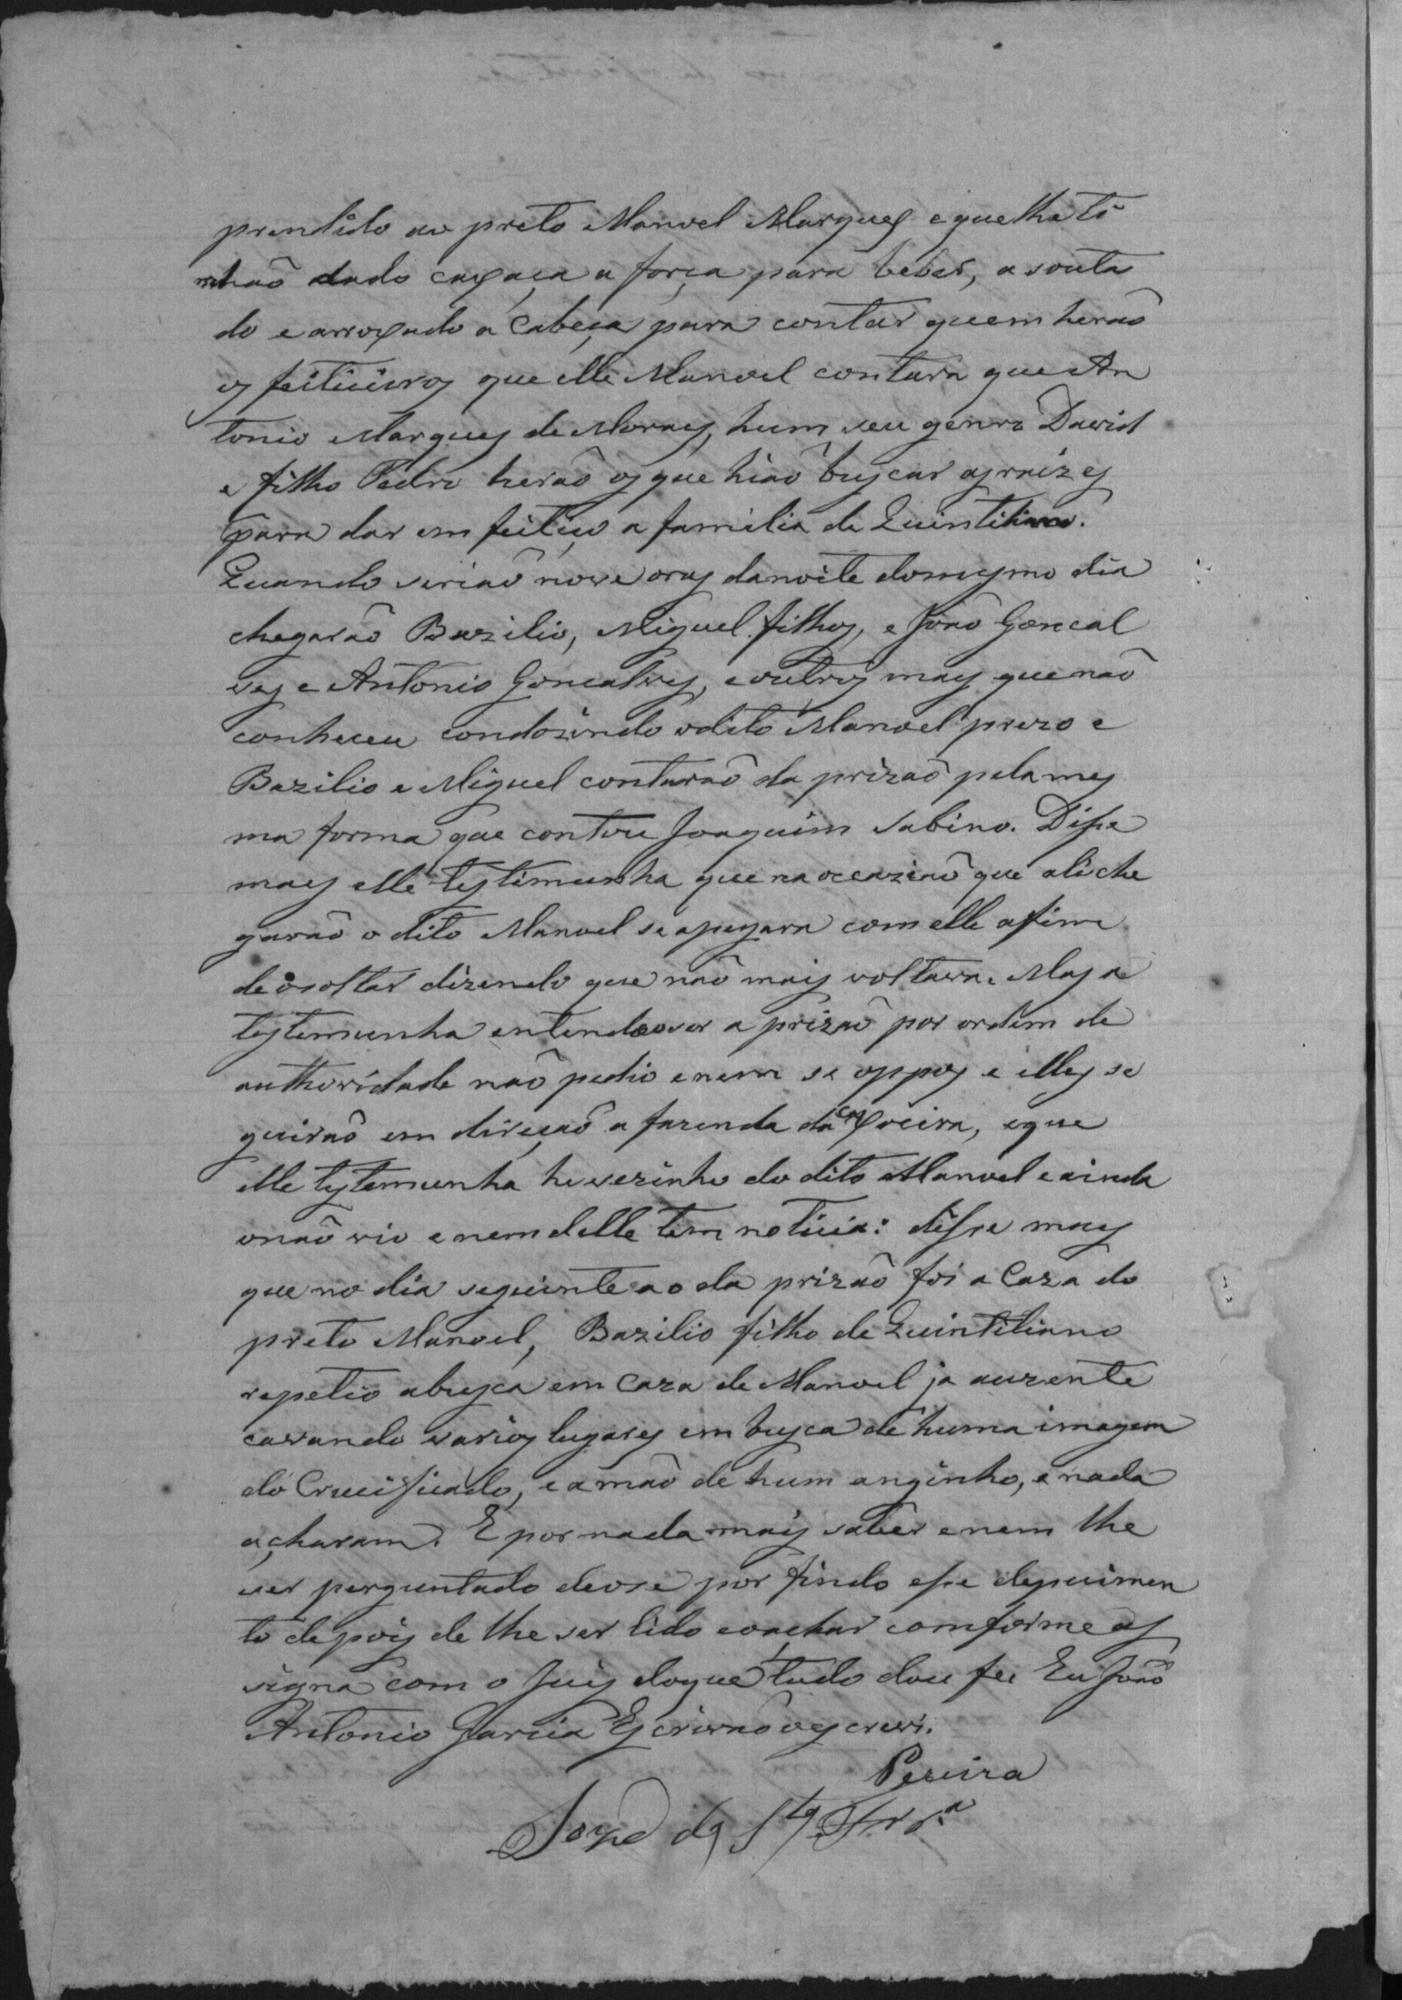 prendido ao preto Manoel Marques e que lhe ti
nhaõ dado caxaça a força para beber, asouta
do e arroxado a Cabeça para contar quem heraõ
os feiticeiros que elle Manoel contara que An
tonio Marques de Moraes, hum seu genro David
e filho Pedro heraõ os que hiaõ buscar as raizes
para dar em feitiço a familia de Quintiliano.
Quando seriaõ nove oras da noite do mesmo dia
chegaraõ Bazilio, Miguel filhos, e Joaõ Goncal
ves e Antonio Goncalves, e outros mais que naõ
conheceu condozindo o dito Manoel prezo e
Bazilio e Miguel contaraõ da prizaõ pela mes
ma forma que contou Joaquim Sabino. Disse
mais elle testimunha que na occaziaõ que ali che
garaõ o dito Manoel se apegara com elle afim
de o soltar dizendo que naõ mais voltava. Mas a
testemunha entendeo ser a prizaõ por ordem de
authoridade naõ pedio e nem se oppos e elles se
guiraõ em direçaõ a fazenda da caxoeira, e que
elle testemunha he vezinho do dito Manoel e ainda
o naõ vio e nem delle tem noticia: disse mais
que no dia seguinte ao da prizaõ foi a Caza do
preto Manoel, Bazilio filho de Quintiliano
repetio a busca em Caza de Manoel ja auzente
cavando varios lugares em busca de huma imagem
do Crucificado, e a maõ de hum anginho, e nada
açharam. E por nada mais saber e nem lhe
ser perguntado deo se por findo esse depuimen
to depois de lhe ser lido e o achar comforme as
signa com o Juis do que tudo dou fee Eu Joaõ
Antonio Garcia Escrivaõ o escrevi.
Pereira
Joze dos Stos Frra